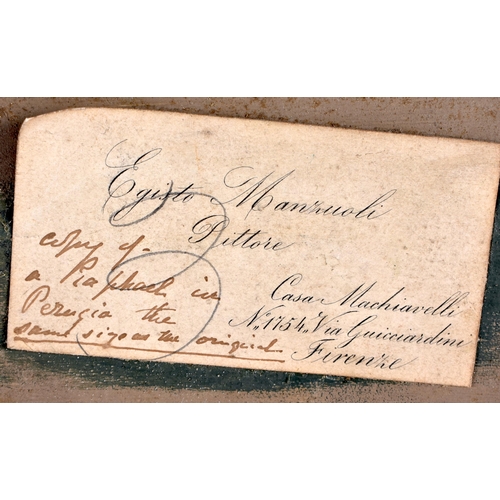 Egisto Manzuoli
Pittore
Casa Machiavelli
N.º 1754 Via Guicciardini
Firenze
copy of
a Raphael in
Perugia the
same size as the original